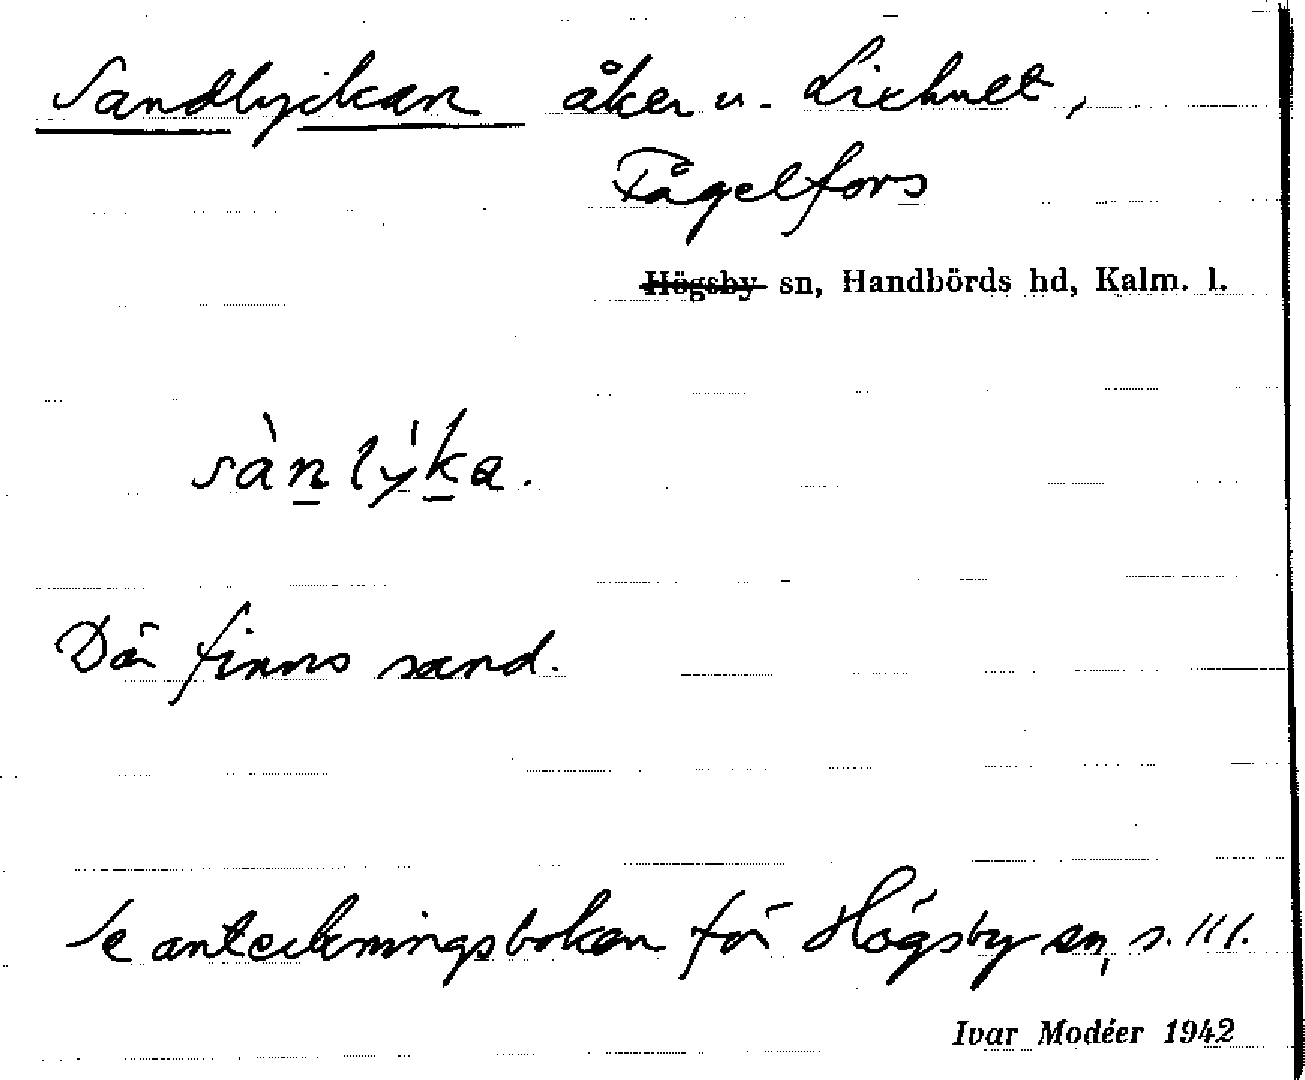 Sandlyckan åker u. Lixhult,
Fågelfors
Högsby sn, Handbörds hd, Kalm. l.
sàn lýka.
Där finns sand.
Se anteckningsboken för Högsby sn, s. 111.
Ivar Modéer 1942